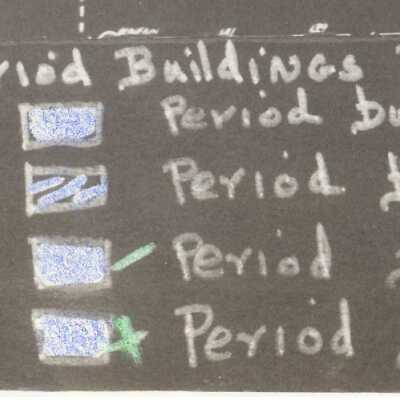 Period Buildings
Period
Period
Period
Period